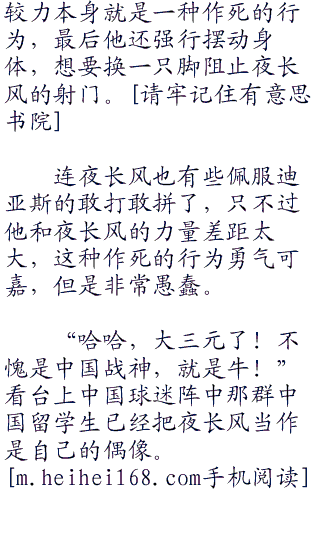 较力本身就是一种作死的行
为，最后他还强行摆动身
体，想要换一只脚阻止夜长
风的射门。[请牢记住有意思
书院]
连夜长风也有些佩服迪
亚斯的敢打敢拼了，只不过
他和夜长风的力量差距太
大，这种作死的行为勇气可
嘉，但是非常愚蠢。
“哈哈，大三元了！不
愧是中国战神，就是牛！”
看台上中国球迷阵中那群中
国留学生已经把夜长风当作
是自己的偶像。
[m.heihei168.com手机阅读]